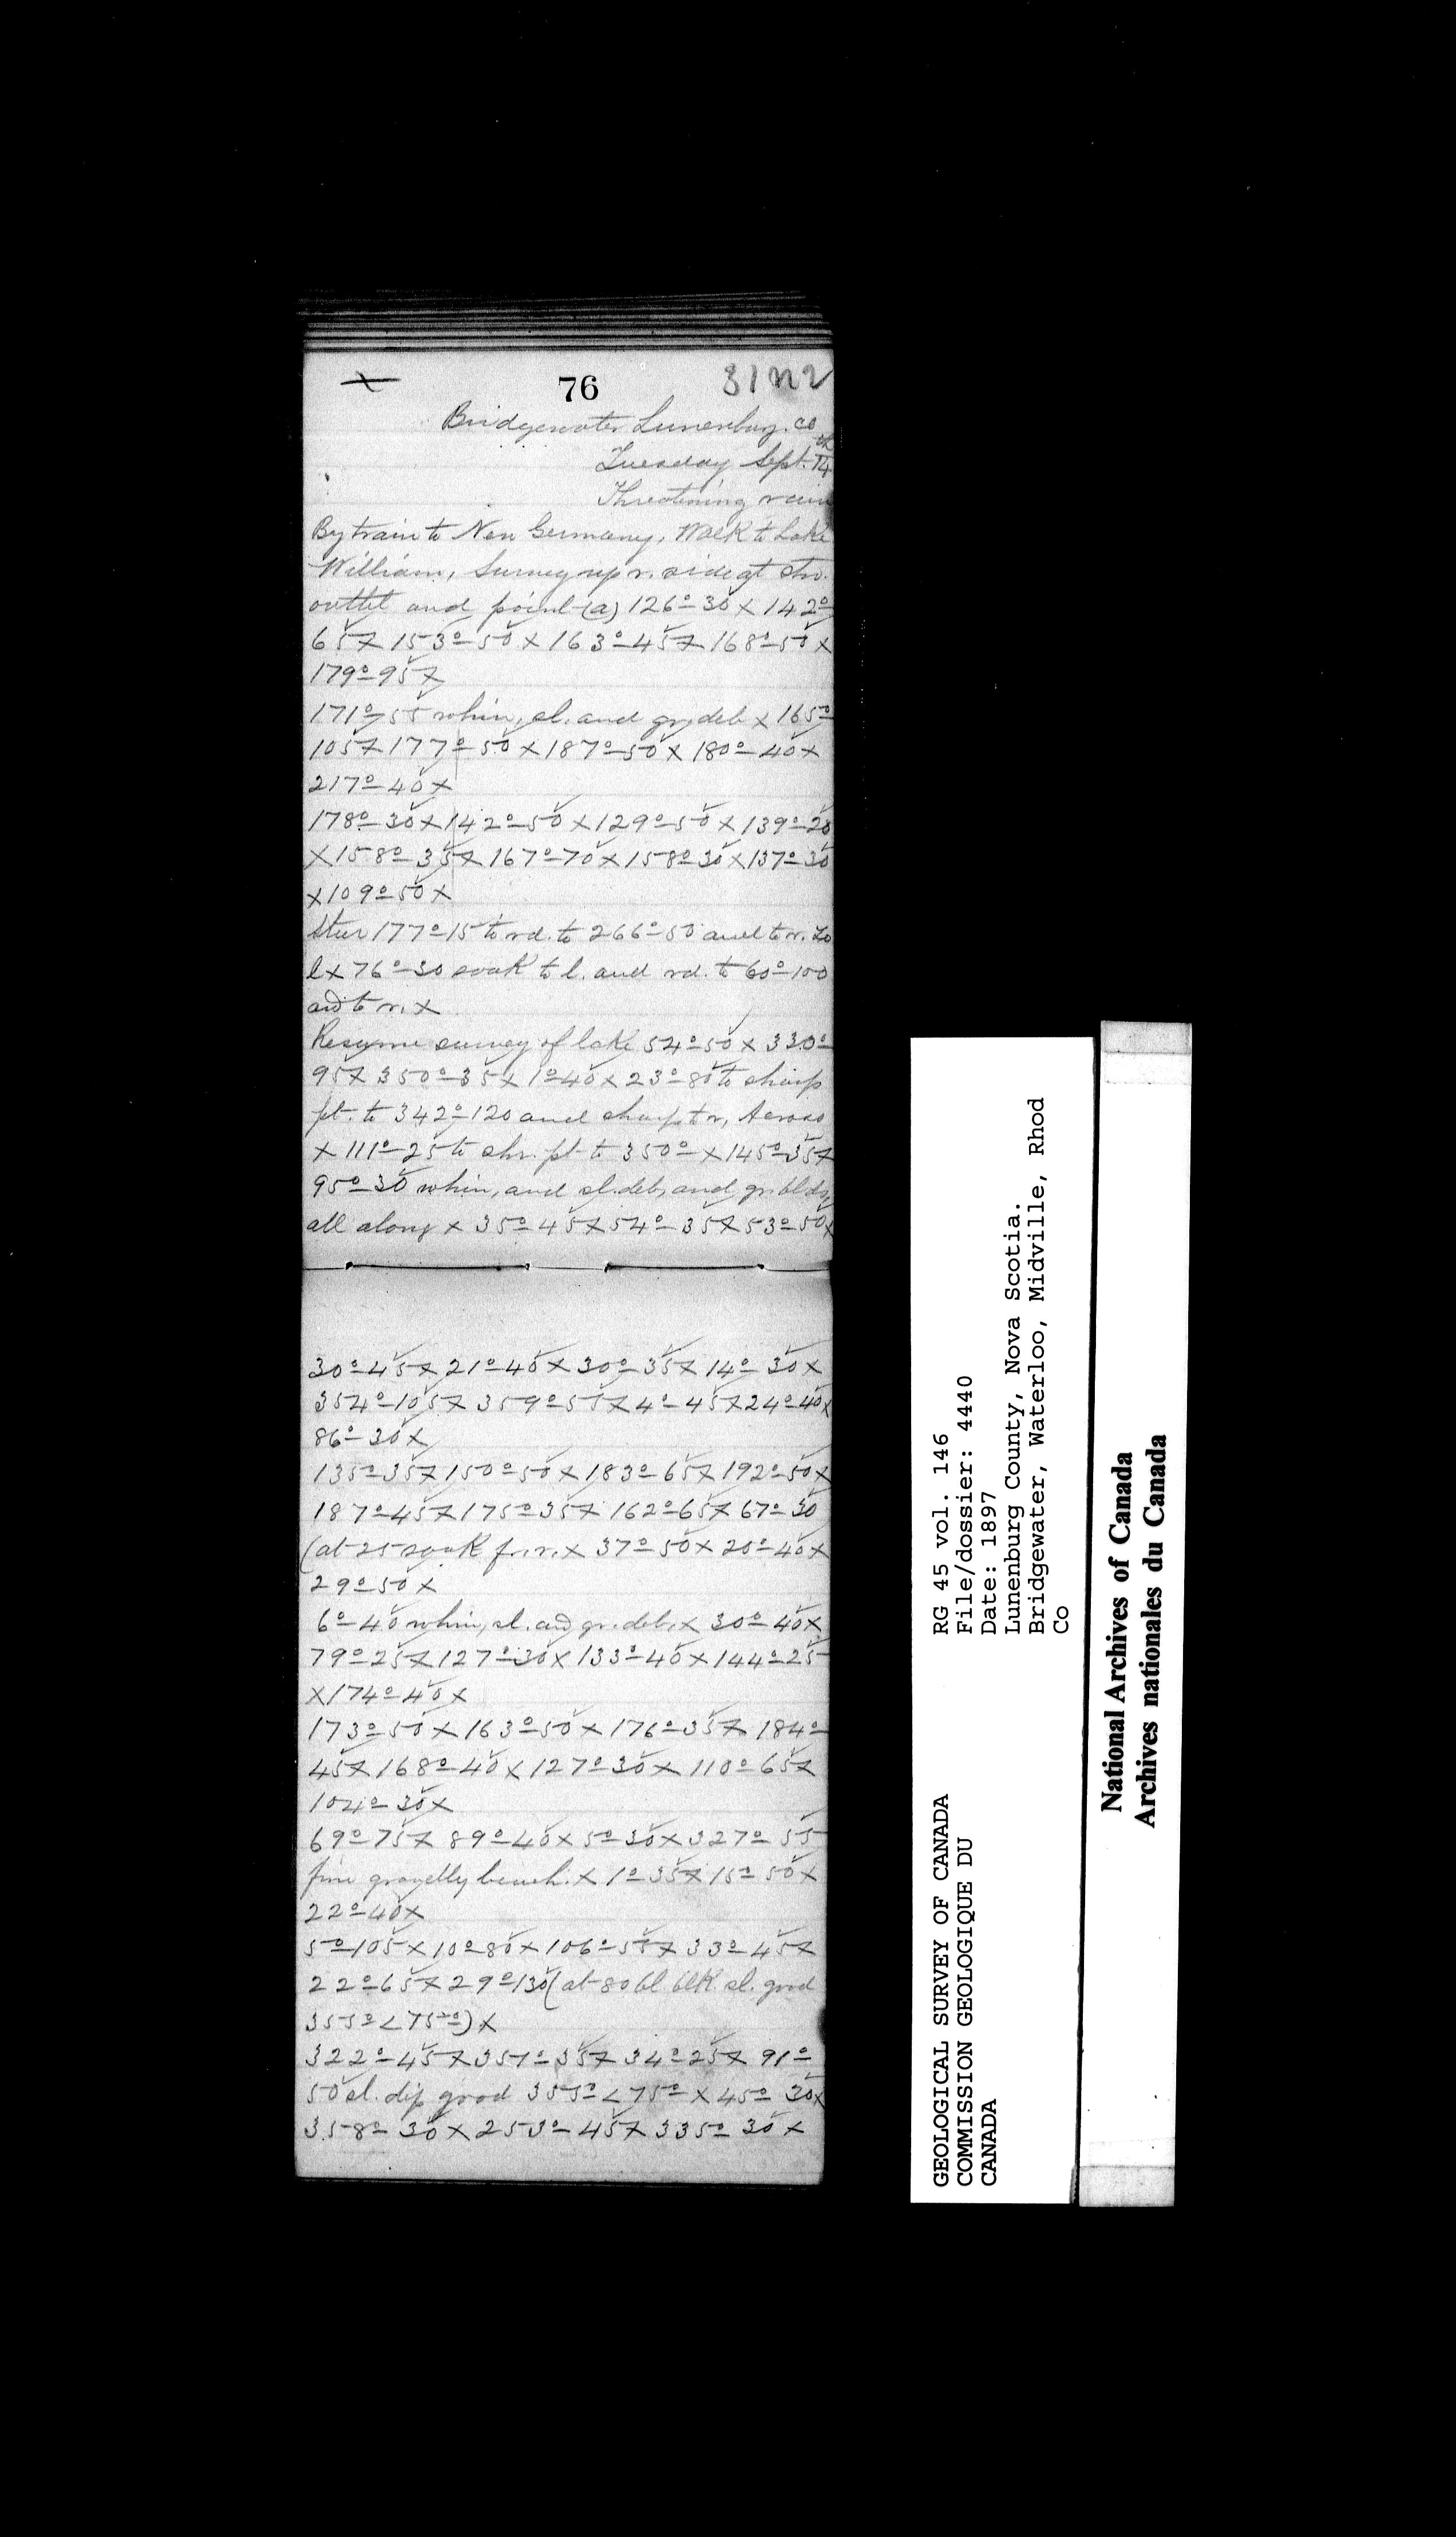 76
Bridgewater Lunenburg. Co
Tuesday Sept. 14th
Threatining rain
By train to New Germany, Walk to Lake
William, Survey up r. side of str.
outlet and point (a) 126°-30 x 142°-
65 x 153°-50 x 163°-45 x 168°-50 x
179°-95 x
171°-55 whin, sl. and gr. deb x 165°-
105 x 177°-50 x 187°-50 x 180°-40 x
217°-40 x
178°-30 x 142°-50 x 129°-50 x 139°-20
x 158°-35 x 167°-70 x 158°-30 x 137°-30
x 109°-50 x
177°-15 to rd. to 266°-50 and to r. to
l x 76°-30 soak to l. and rd. to 60°-100
and to r. x
Resume survey of lake 54°-50 x 330°-
95 x 350°-35 x 1°-40 x 23°-80 to sharp
pt. to 342°-120 and sharp to r, Across
x 111°-25 to shr. pt to 350°- x 145°-35 x
95°-30 whin, and sl. deb, and gr. blds,
all along x 35°-45 x 54°-35 x 53°-50 x
30°-45 x 21°-40 x 30°-35 x 14°-30 x
354°-105 x 359°-55 x 4°-45 x 24°-40 x
86°-30 x
135°-35 x 150°-50 x 183°-65 x 192°-50 x
187°-45 x 175°-35 x 162°-65 x 67°-30
(at 25 soak fr. r. x 37°-50 x 20°-40 x
29°-50 x
6°-40 whin, sl. and gr. deb, x 30°-40 x
79°-25 x 127°-30 x 133°-40 x 144°-25
x 174°-40 x
173°-50 x 163°-50 x 176°-35 x 184°-
45 x 168°-40 x 127°-30 x 110°-65 x
104°-30 x
69°-75 x 89°-40 x 5°-30 x 327°-55
fine gravelly beach. x 1°-35 x 15°-50 x
22°-40 x
5°-105 x 10°-80 x 106°-55 x 33°-45 x
22°-65 x 29°-130 (at 80 bl blk. sl. good
355°<75°) x
322°-45 x 351°-35 x 34°-25 x 91°-
50 sl. dip good 355°<75°- x 45°-30 x
358°-30 x 253°-45 x 335°-30 x
GEOLOGICAL SURVEY OF CANADA
COMMISSION GEOLOGIQUE DU
CANADA
RG 45 vol. 146
File/dossier: 4440
Date: 1897
Lunenburg County, Nova Scotia.
Bridgewater, Waterloo, Midville, Rhod
Co
National Archives of Canada
Archives nationales du Canada